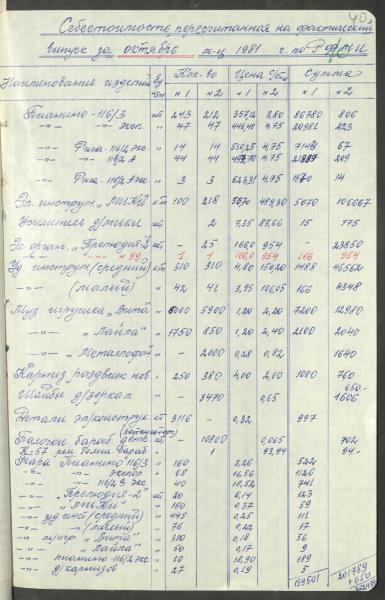 40
Себестоимость пересчитанная на фактический
выпуск за октябрь м-ц 1981 г. по
Наименование изделий Ед. Кол-во Цена Сумма
№1 №2 №1 №2 №1 №2
Пианино-116/3 шт 243 212 357,12 3,80 86780 806
-"- -"- эксп. " 47 47 446,40 4,75 20981 223
-"- Рига-116/2 экс " 14 14 510,25 4,75 67
-"- -"- 112,А " 44 44 4,75 209
-"- Рига-112,А экс. " 3 3 4,75 14
Эл. инструм. "МИКИ" кт 100 218 489,30 5070 106667
Усилитель д/мики шт 2 7,35 87,66 15 175
Эл. орган. "Прелюдия-2" шт - 25 166,0 954 - 23850
-"- -"- №99 " 1 1 166,0 954 166 954
Уд. инструм (средний) кт 310 310 4,80 150,20 1488 46562
-"- (малый) " 42 41 3,95 106,05 166 4348
Муз. игрушка "Вита" " 6000 5900 1,20 2,20 7200 12980
-"- "Лайла" " 1750 850 1,20 2,40 2100 2040
-"- "Металлофон" " - 2000 0,28 0,82 1640
Карниз раздвижной " 250 380 4,00 2,00 1000 760
650.-
Шайбы д/зеркал " 3470 0,65 1606
Детали эл/конструк кт 3116 - 0,32 997
Палочки бараб. дет. шт - 10800 0,065 702
К-57 рем. бараб. " 1 93,94 94-
Тара Пианино 116/3 " 160 3,26 522
-"- -"- экспор " 68 16,56 1126
-"- -"- 116/2 экс " 40 18,52 741
-"- "Прелюдия-2" шт 20 6,14 123
-"- "МИКИ" " 160 0,37 59
-"- уд. инст (средний) " 445 0,25 111
-"- -"- (малый) " 76 0,22 17
-"- м/игр. "Вита" " 310 0,18 56
-"- -"- "Лайла" " 50 0,17 9
-"- пианино 112/2 экс " 10 18,90 189
-"- д/карнизов " 27 0,19 5
159501 201789
+650